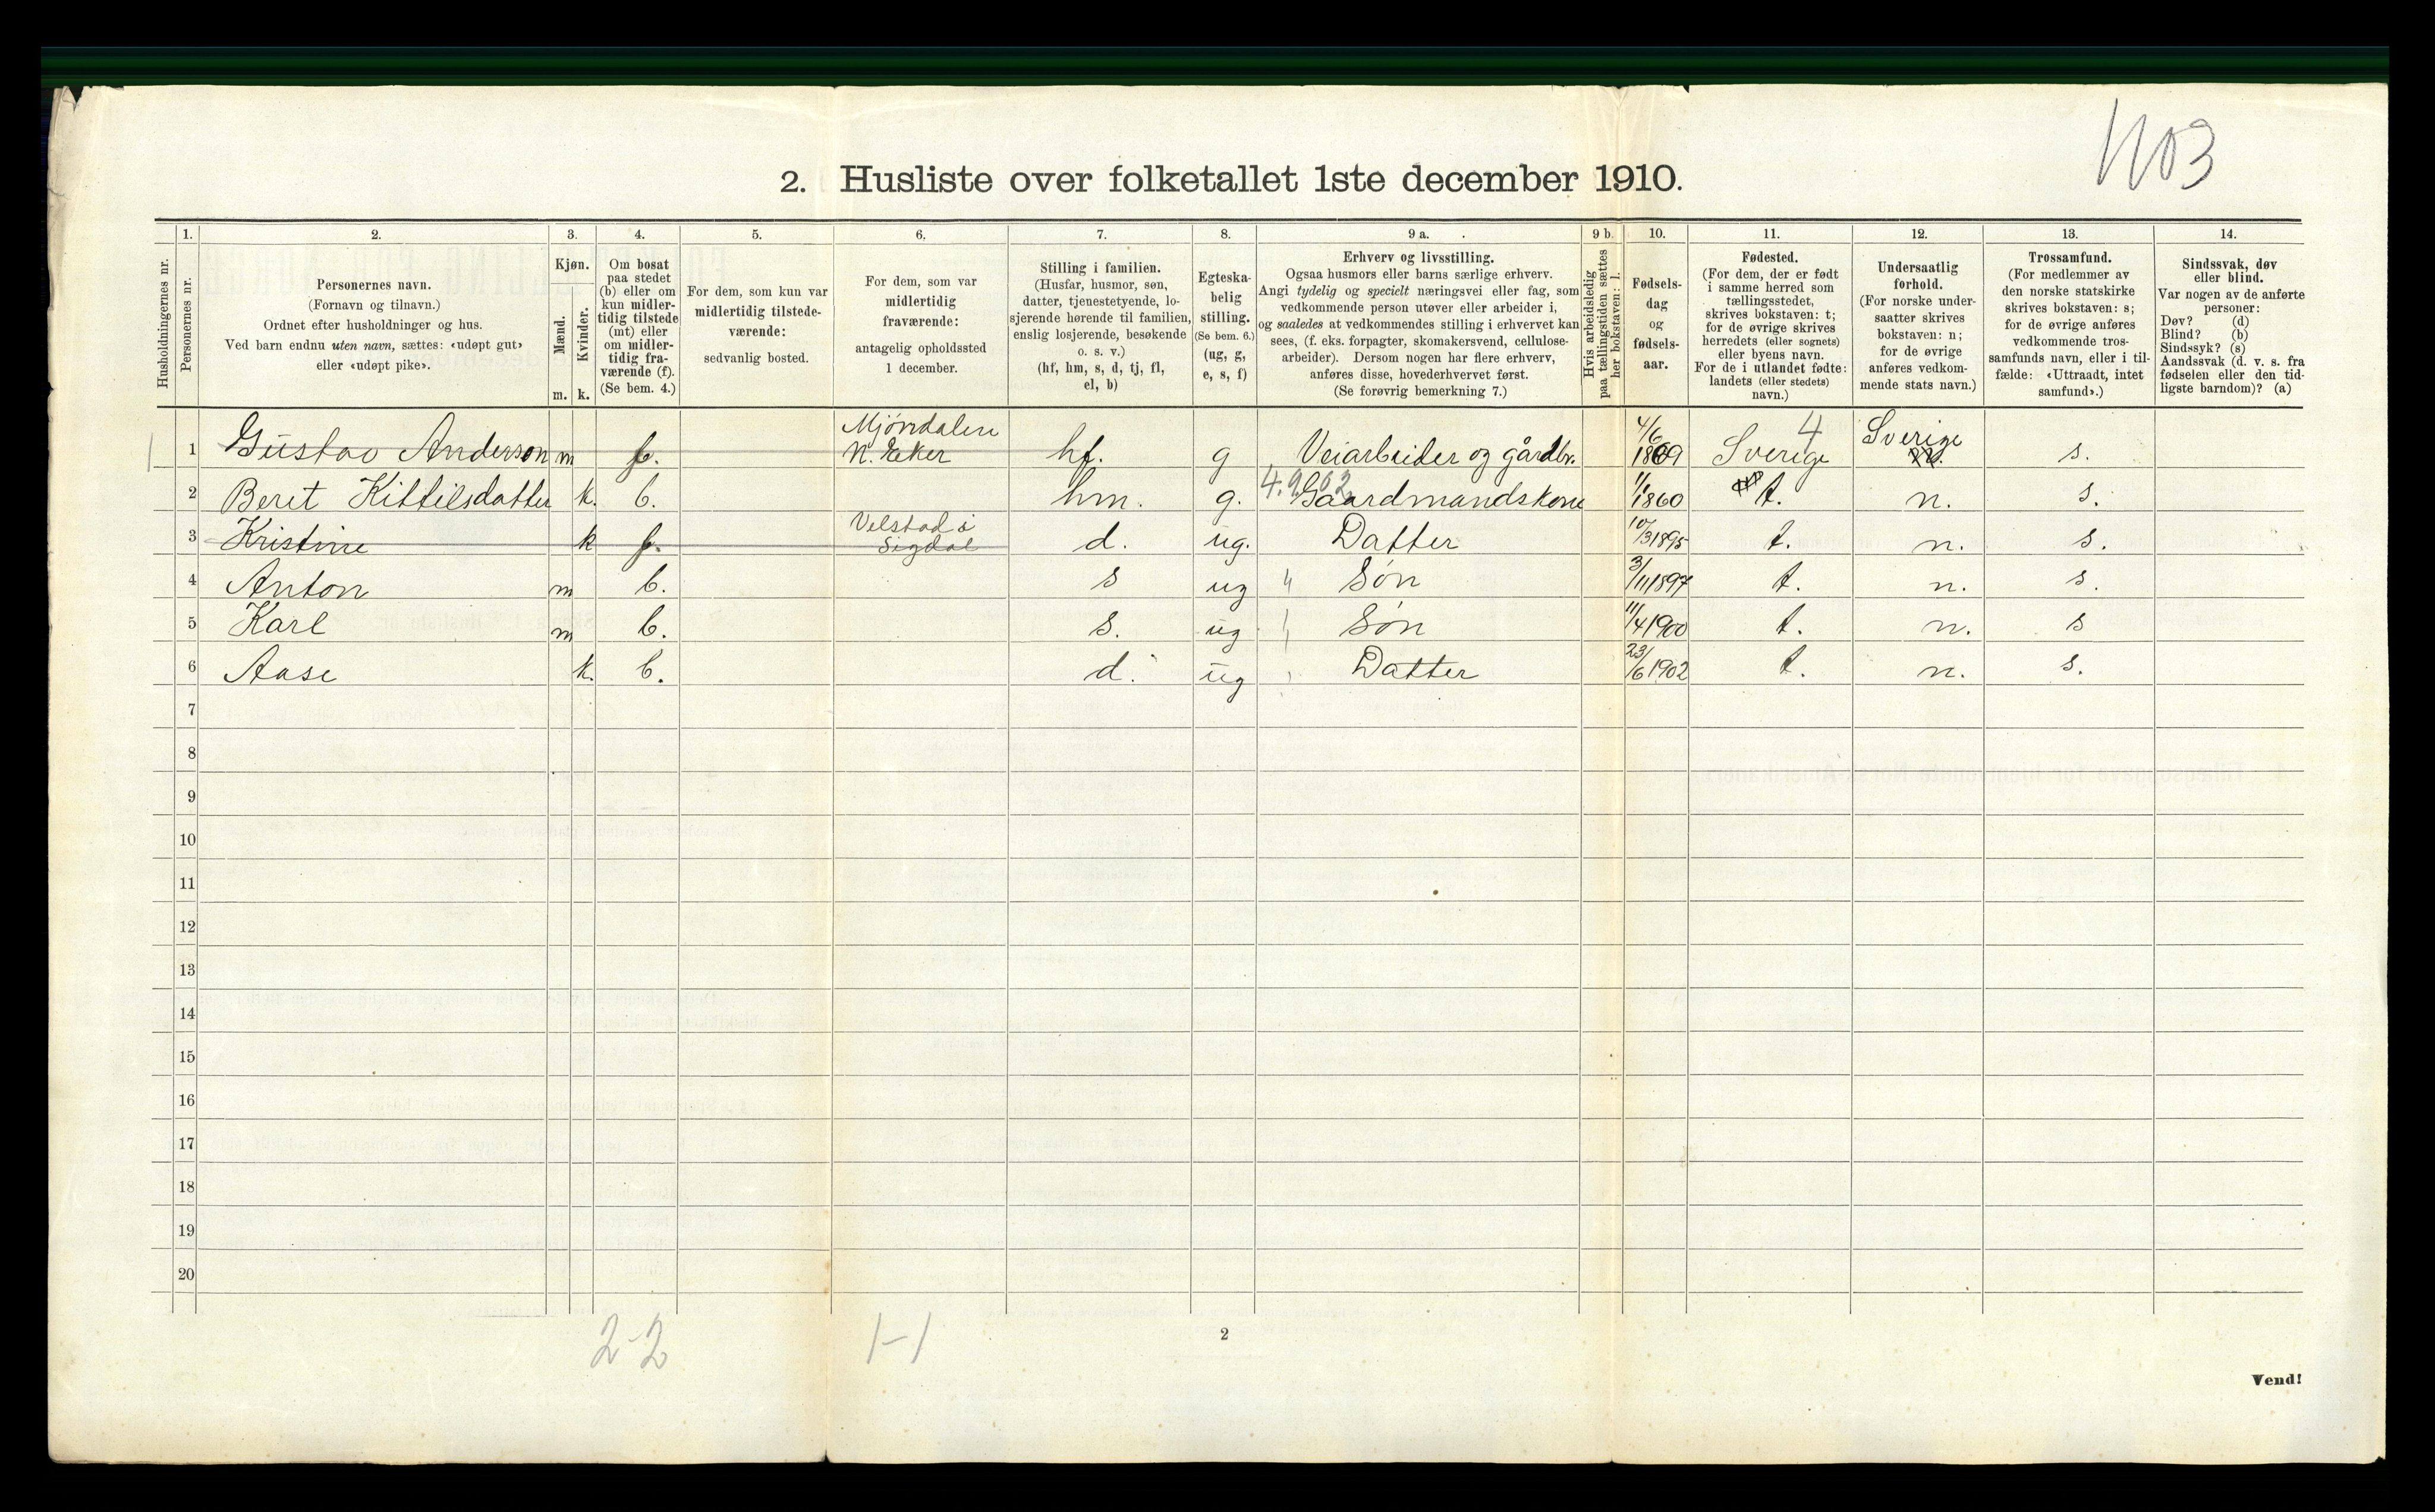 1103
2. Husliste over folketallet 1ste december 1910.
Husholdningernes nr.
1.
Personernes nr.
2.
Personernes navn.
(Fornavn og tilnavn.)
Ordnet efter husholdninger og hus.
Ved barn endnu uten navn, sættes: «udøpt gut»
eller «udøpt pike».
3.
Kjøn.
Mænd.
Kvinder.
m. k.
4.
Om bosat
paa stedet
(b) eller om
kun midler-
tidig tilstede
(mt) eller
om midler-
tidig fra-
værende (f).
(Se bem. 4.)
5.
For dem, som kun var
midlertidig tilstede-
værende:
sedvanlig bosted.
6.
For dem, som var
midlertidig
fraværende:
antagelig opholdssted
1 december.
7.
Stilling i familien.
(Husfar, husmor, søn,
datter, tjenestetyende, lo-
sjerende hørende til familien,
enslig losjerende, besøkende
o. s. v.)
(hf, hm, s, d, tj, fl,
el, b)
8.
Egteska-
belig
stilling.
(Se bem. 6.)
(ug, g,
e, s, f)
9 a.
Erhverv og livsstilling.
Ogsaa husmors eller barns særlige erhverv.
Angi tydelig og specielt næringsvei eller fag, som
vedkommende person utøver eller arbeider i,
og saaledes at vedkommendes stilling i erhvervet kan
sees, (f. eks. forpagter, skomakersvend, cellulose-
arbeider). Dersom nogen har flere erhverv,
anføres disse, hovederhvervet først.
(Se forøvrig bemerkning 7.)
9 b.
Hvis arbeidsledig
paa tællingstiden sættes
her bokstaven: l.
10.
Fødsels-
dag
og
fødsels-
aar.
11.
Fødested.
(For dem, der er født
i samme herred som
tællingsstedet,
skrives bokstaven: t;
for de øvrige skrives
herredets (eller sognets)
eller byens navn.
For de i utlandet fødte:
landets (eller stedets)
navn.)
12.
Undersaatlig
forhold.
(For norske under-
saatter skrives
bokstaven: n;
for de øvrige
anføres vedkom-
mende stats navn.)
13.
Trossamfund.
(For medlemmer av
den norske statskirke
skrives bokstaven: s;
for de øvrige anføres
vedkommende tros-
samfunds navn, eller i til-
fælde: «Uttraadt, intet
samfund».)
14.
Sindssvak, døv
eller blind.
Var nogen av de anførte
personer:
Døv? (d)
Blind? (b)
Sindssyk? (s)
Aandssvak (d. v. s. fra
fødselen eller den tid-
ligste barndom)? (a)
1 1 Gustav Anderson m f. Mjöndalen N. Eker hf. g Veiarbeider og gårdbr. 4/6 1869 Sverige 4 Sverige s.
2 Beret Kittilsdatter k. b. hm. g. Gaardmandskone 1/1 1860 t. n. s.
3 Kristine k f. Velstad i Sigdal d. ug. Datter 10/3 1895 t. n. s.
4 Anton m b. s ug " Søn 3/11 1897 t. n. s.
5 Karl m b. s. ug Søn 11/4 1900 t. n. s
6 Aase k. b. d. ug Datter 23/6 1902 t. n. s.
7
8
9
10
11
12
13
14
15
16
17
18
19
20
2-2
1-1
2
Vend!